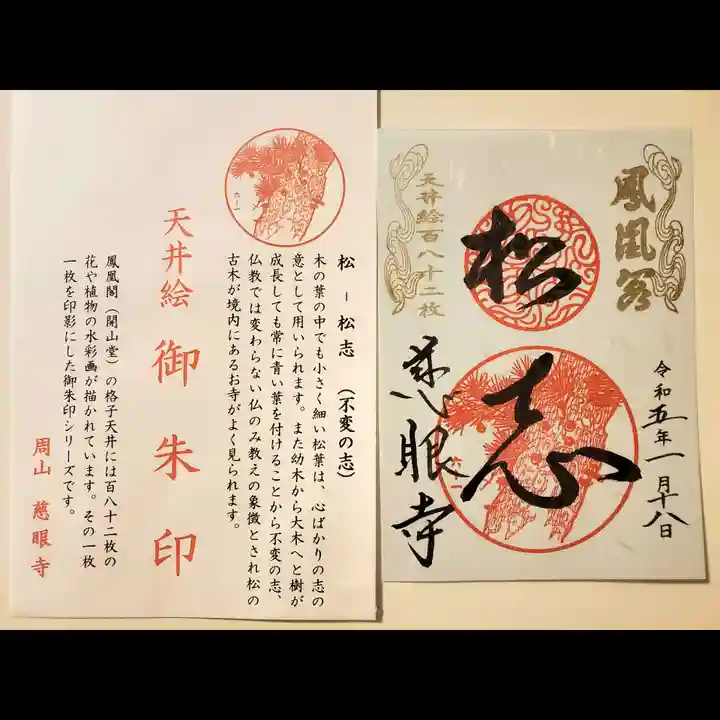 松 － 松志 （不変の志）
木の葉の中でも小さく細い松葉は、心ばかりの志の
意として用いられます。また幼木から大木へと樹が
成長しても常に青い葉を付けることから不変の志、
仏教では変わらない仏のみ教えの象徴とされ松の
古木が境内にあるお寺がよく見られます。
天井絵 御朱印
鳳凰閣（開山堂）の格子天井には百八十二枚の
花や植物の水彩画が描かれています。その一枚
一枚を印影にした御朱印シリーズです。
周山 慈眼寺
鳳凰閣
令和五年一月十八日
松志
天井絵百八十二枚
慈眼寺